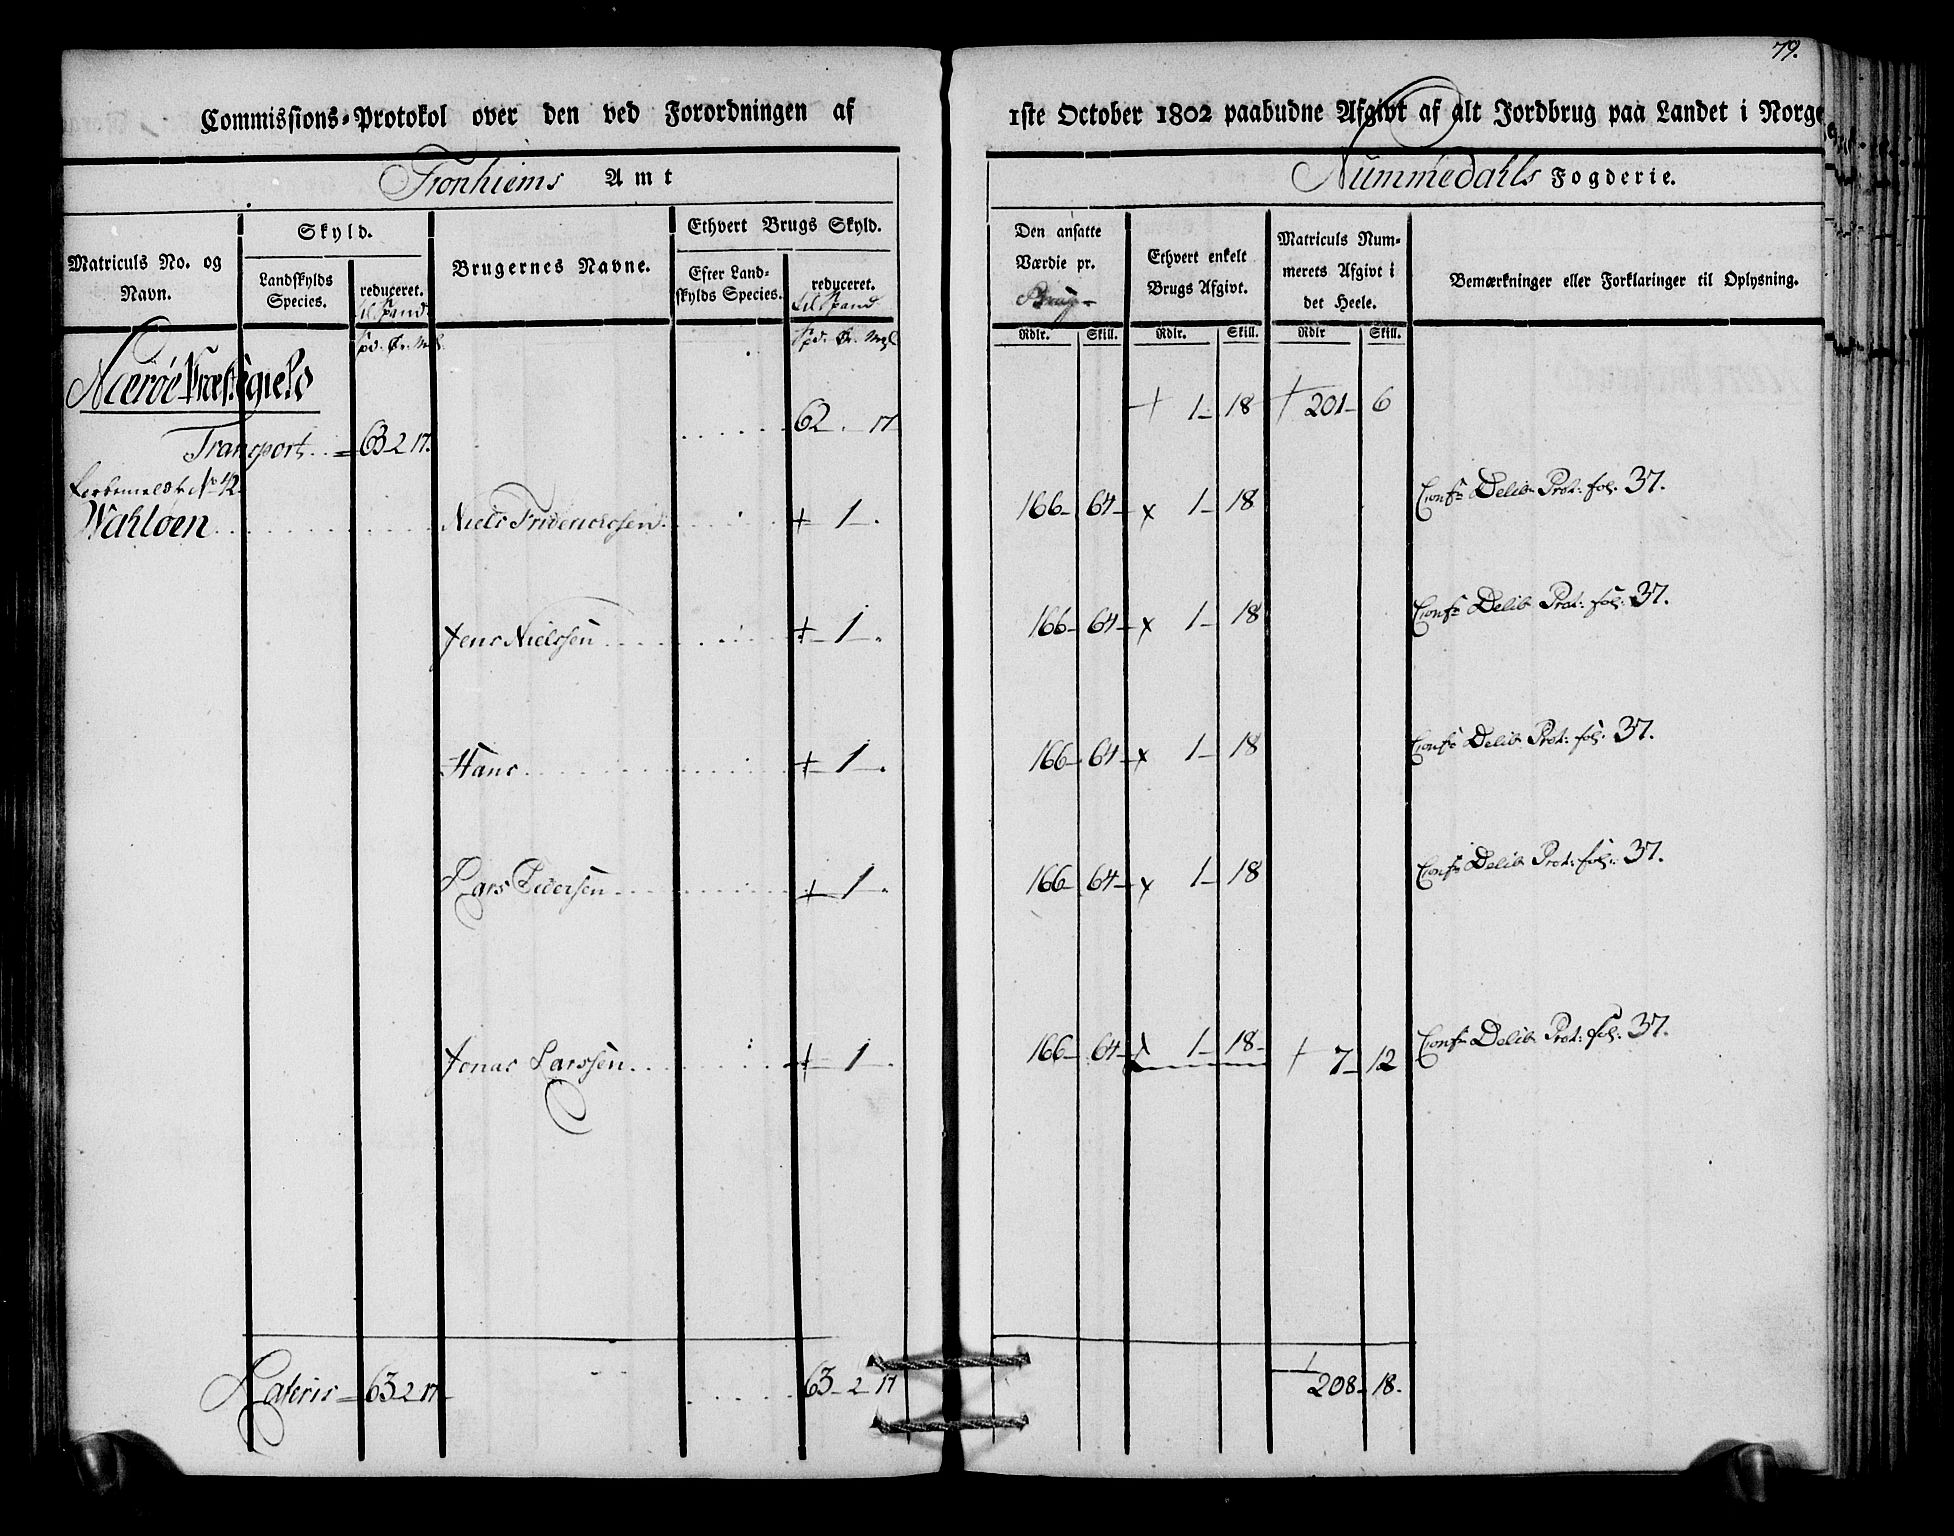 79.
Commissions-Protokol over den ved Forordningen af 1ste October 1802 paabudne Afgivt af alt Jordbrug paa Landet i Norge
Tronhiems Amt
Nummedahls Fogderie.
Matriculs No. og Navn.
Skyld.
Landskylds Species.
reduceret.
til Spand.
Brugernes Navne.
Ethvert Brugs Skyld.
Efter Landskylds Species.
reduceret.
til Spand
Den ansatte Værdie pr. Brug
Ethvert enkelt Brugs Afgivt.
Matriculs Nummerets Afgivt i det Heele.
Bemærkninger eller Forklaringer til Oplysning.
Spd. Ør. Mkl. Spd. Ør. Mkl. Rdlr. Skill. Rdlr. Skill. Rdlr Skill.
Nærøe Præstegield
Transport 63 2 17. 62 . 17 + 1 18 + 201 6
No 42
Wahløen Niels Friderichsen + 1 . 166 64 x 1 18 Conf: Delib: Prot: fol: 37.
Jens Nielssen + 1 . 166 64 x 1 18 Conf: Delib: Prot: fol: 37.
Hans + 1 . 166 64 x 1 18 Conf: Delib: Prot: fol: 37.
Lars Pedersen + 1 . 166 64 x 1 18 Conf: Delib: Prot: fol: 37.
Jonas Larssen + 1 . 166 64 x 1 18 + 7 12 Conf: Delib: Prot: fol: 37.
Lateris 63 2 17 63 2 17 208 18.